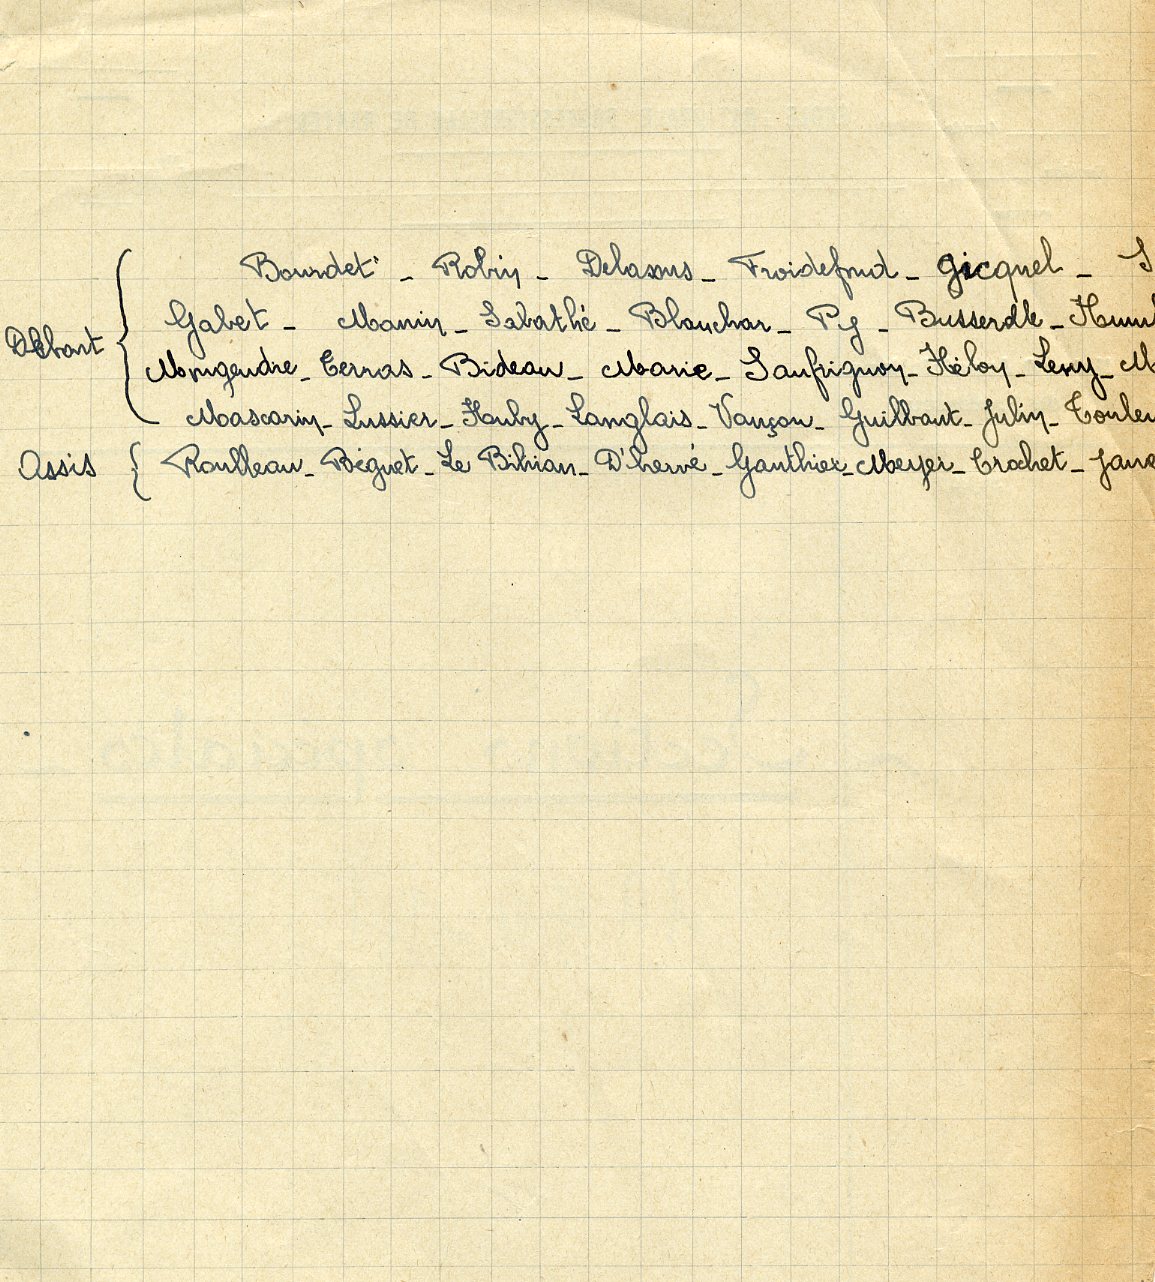 Bourdet - Robin - Delasous - Froidefond - Gicquel - S
Gabet - Manin - Sabathé - Blanchar - Py - Busserolle - Humb
Debout
Mongendre - Ternas - Bideau - Marie - Saufrignon - Héloy - Leny - M
Mascarin - Lussier - Hauby - Langlais - Vançon - Guilbaut - Julin - Toule
Assis { Roulleau - Béguet - Le Bihian - D'hervé - Gauthier - Meyer - Crochet - Jan